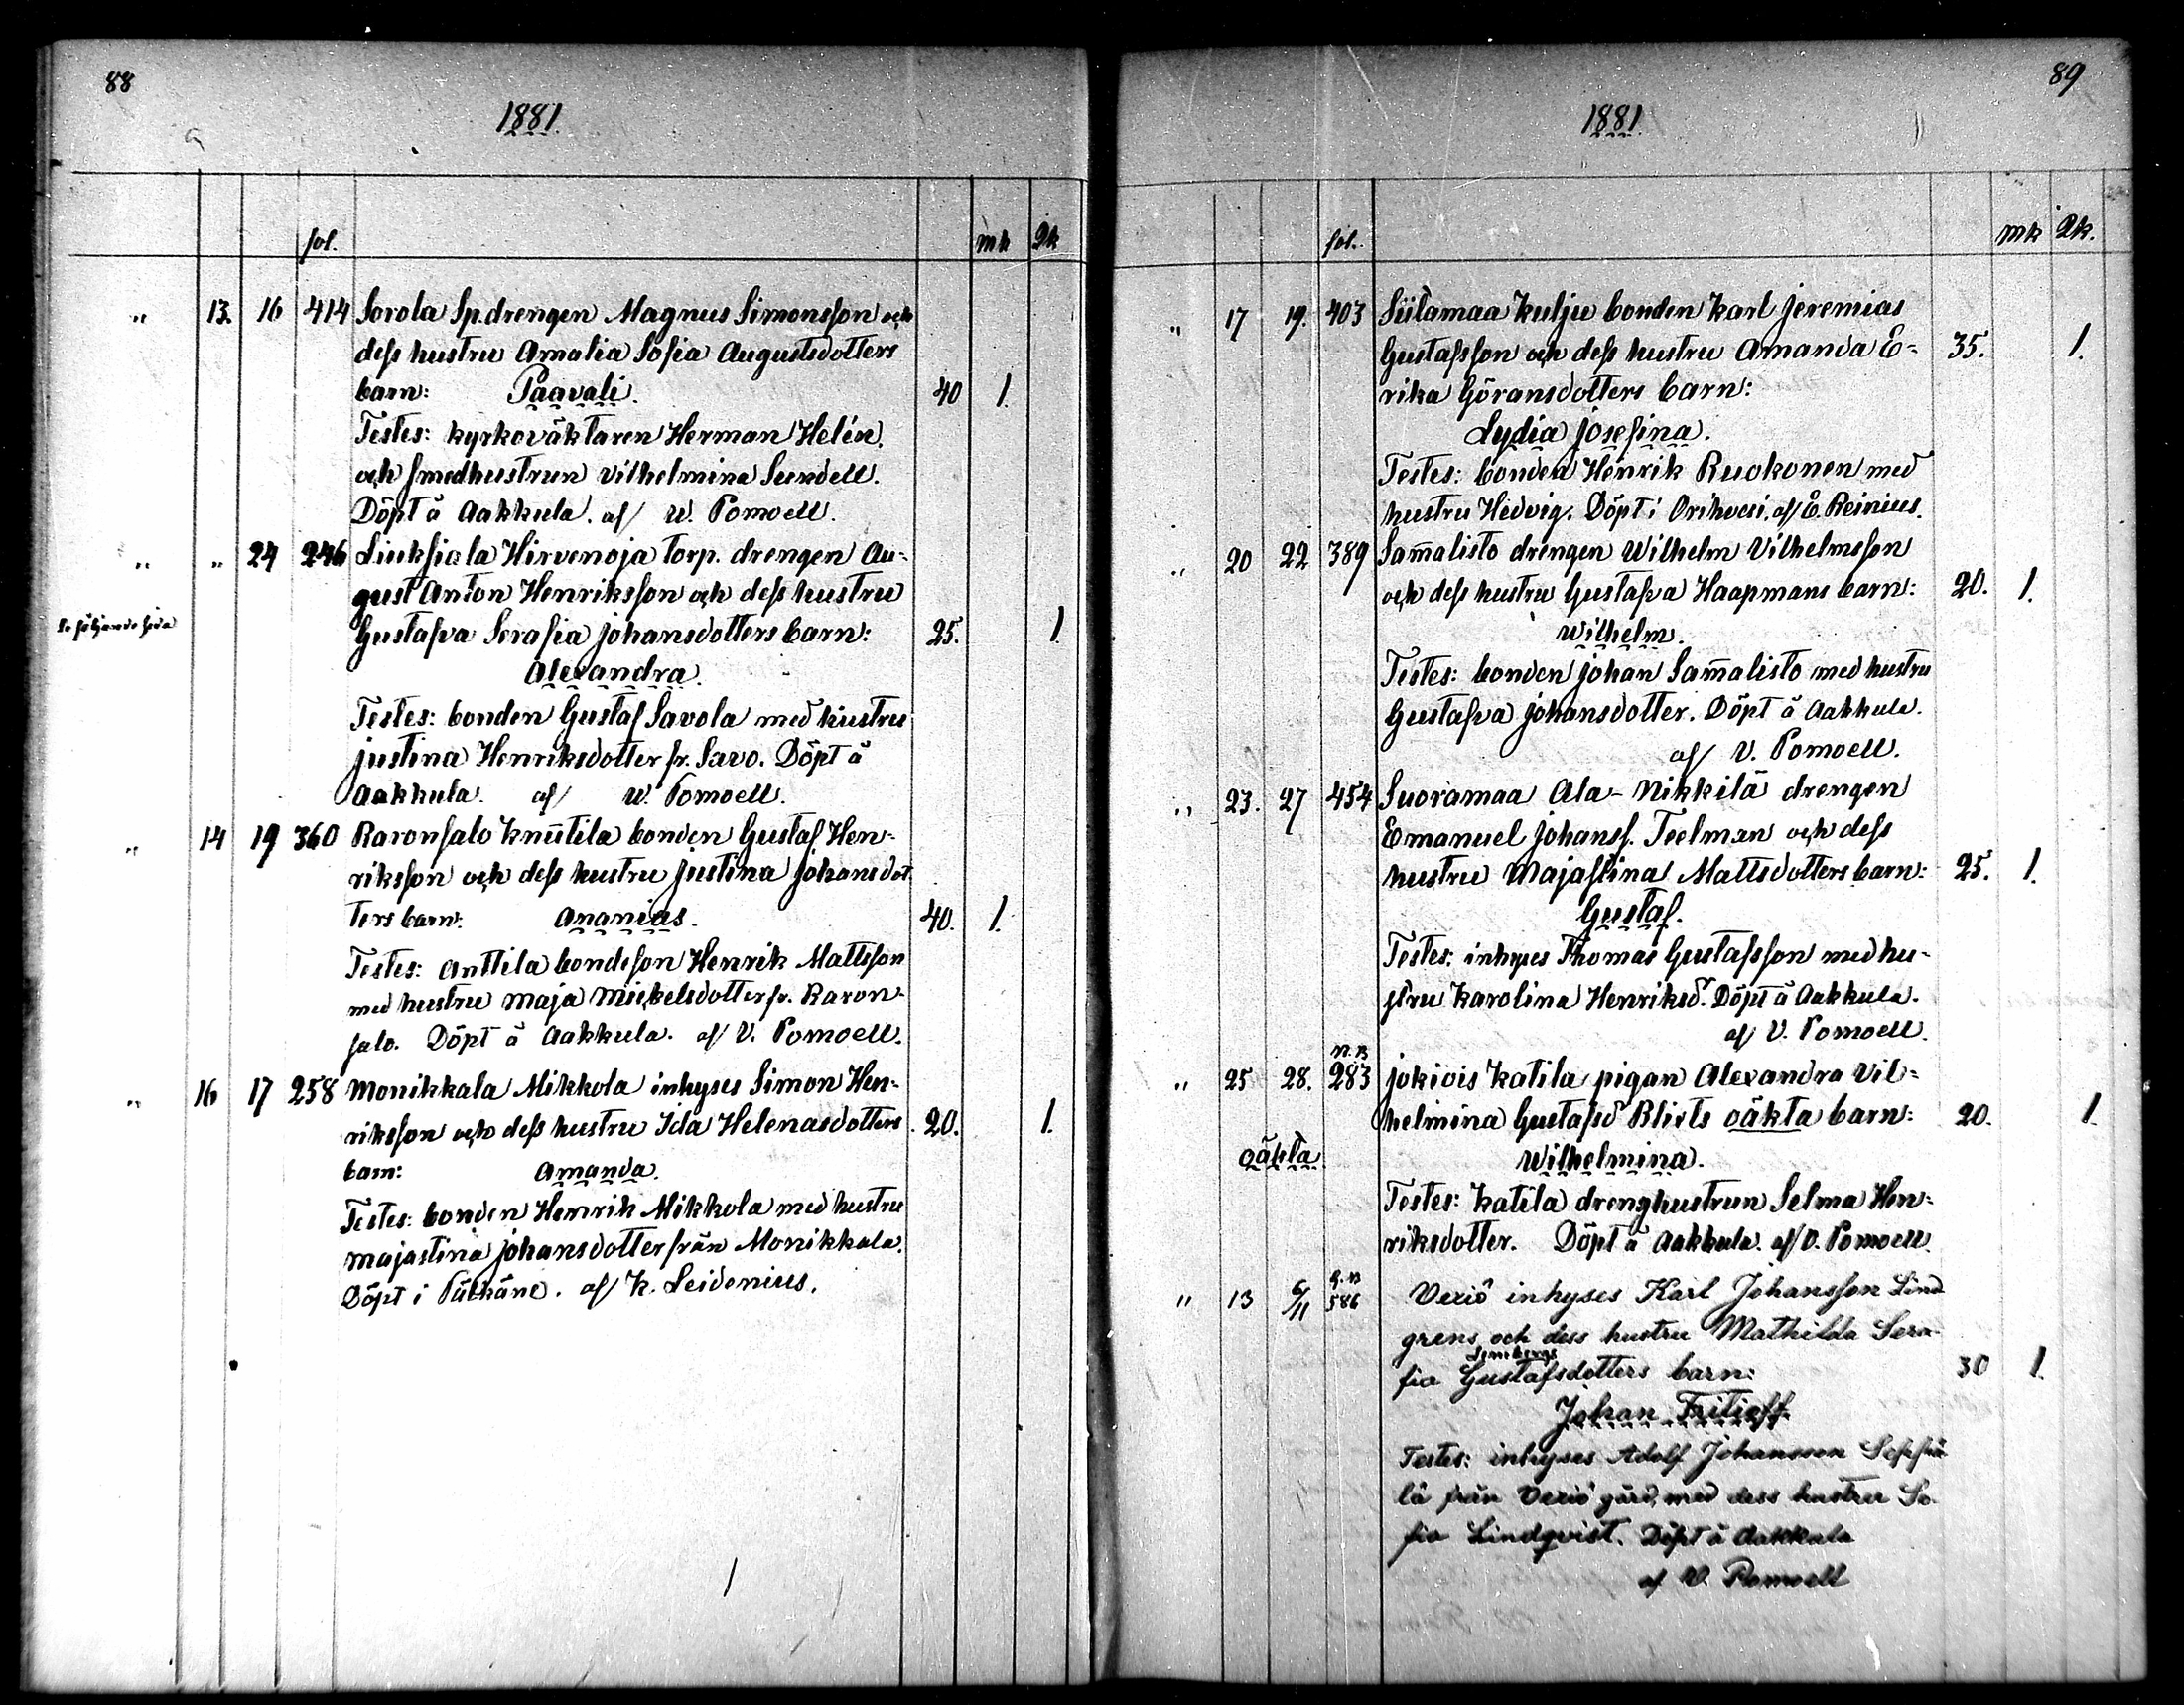 88
1881.
fol. mk Qk
" 13. 16 414 Sorola Sp.drengen Magnus Simonsson och
dess hustru Amalia Sofia Augustsdotters
barn: Paavali. 40 1.
Testes: kyrkoväktaren Herman Helén.
och smedhustrun Vilhelmina Sundell.
Döpt å Aakkula. af W. Pomoell.
" " 24 246 Liuksiala Hirvenoja torp. drengen Au-
gust Anton Henriksson och dess hustru
Se följande sida Gustafva Serafia Johansdotters barn: 25. 1.
Alexandra.
Testes: bonden Gustaf Savola med hustru
Justina Henriksdotter fr. Savo. Döpt å
Aakkula. af W. Pomoell.
" 14 19 360 Raronsalo Knuutila bonden Gustaf Hen-
riksson och dess hustru Justina Johansdot
ters barn: Ananias. 40. 1.
Testes: Anttila bondeson Henrik Mattsson
med hustru Maja Mickelsdotter fr. Raron-
salo. Döpt å Aakkula. af V. Pomoell.
" 16 17 258 Monikkala Mikkola inhyses Simon Hen-
riksson och dess hustru Ida Helenasdotters 20. 1.
barn: Amanda.
Testes: bonden Henrik Mikkola med hustru
Majastina Johansdotter från Monikkala.
Döpt i Pälkäne. af K. Leidenius.
89
1881.
fol. mk Qk.
" 17 19. 403 Siitamaa Kulju bonden Karl Jeremias
Gustafsson och dess hustru Amanda E- 35. 1.
rika Göransdotters barn:
Lydia Josefina.
Testes: bonden Henrik Ruokonen med
hustru Hedvig. Döpt i Orihvesi. af E. Reinius.
" 20 22 389 Sam̄alisto drengen Wilhelm Vilhelmsson
och dess hustru Gustafva Haapmans barn: 20. 1.
Wilhelm.
Testes: bonden Johan Sam̄alisto med hustru
Gustafva Johansdotter. Döpt å Aakkula.
af V. Pomoell.
" 23. 27 454 Suoramaa Ala-Nikkilä drengen
Emanuel Johanss. Teelman och dess
hustru Majastina Mattsdotters barn: 25. 1.
Gustaf.
Testes: inhyses Thomas Gustafsson med hu-
stru Karolina Henriksd. Döpt å Aakkula.
af V. Pomoell.
N.B
" 25 28. 283 Jokiois Katila pigan Alexandra Vil-
helmina Gustafsd Blixts oäkta barn: 20. 1.
oäkta Wilhelmina.
Testes: Katila drenghustrun Selma Hen-
riksdotter. Döpt å Aakkula. af V. Pomoell.
" 13 6/11 586 Vexiö inhyses Karl Johansson Lind
grens och dess hustru Mathilda Sera-
fia Gustafsdotters barn: 30 1.
Johan Fritioff
Testes: inhyses Adolf Johansson Seppä
lä från Vexiö gård, med dess hustru So-
fia Lindqvist. Döpt å Aakkula
af V. Pomoell